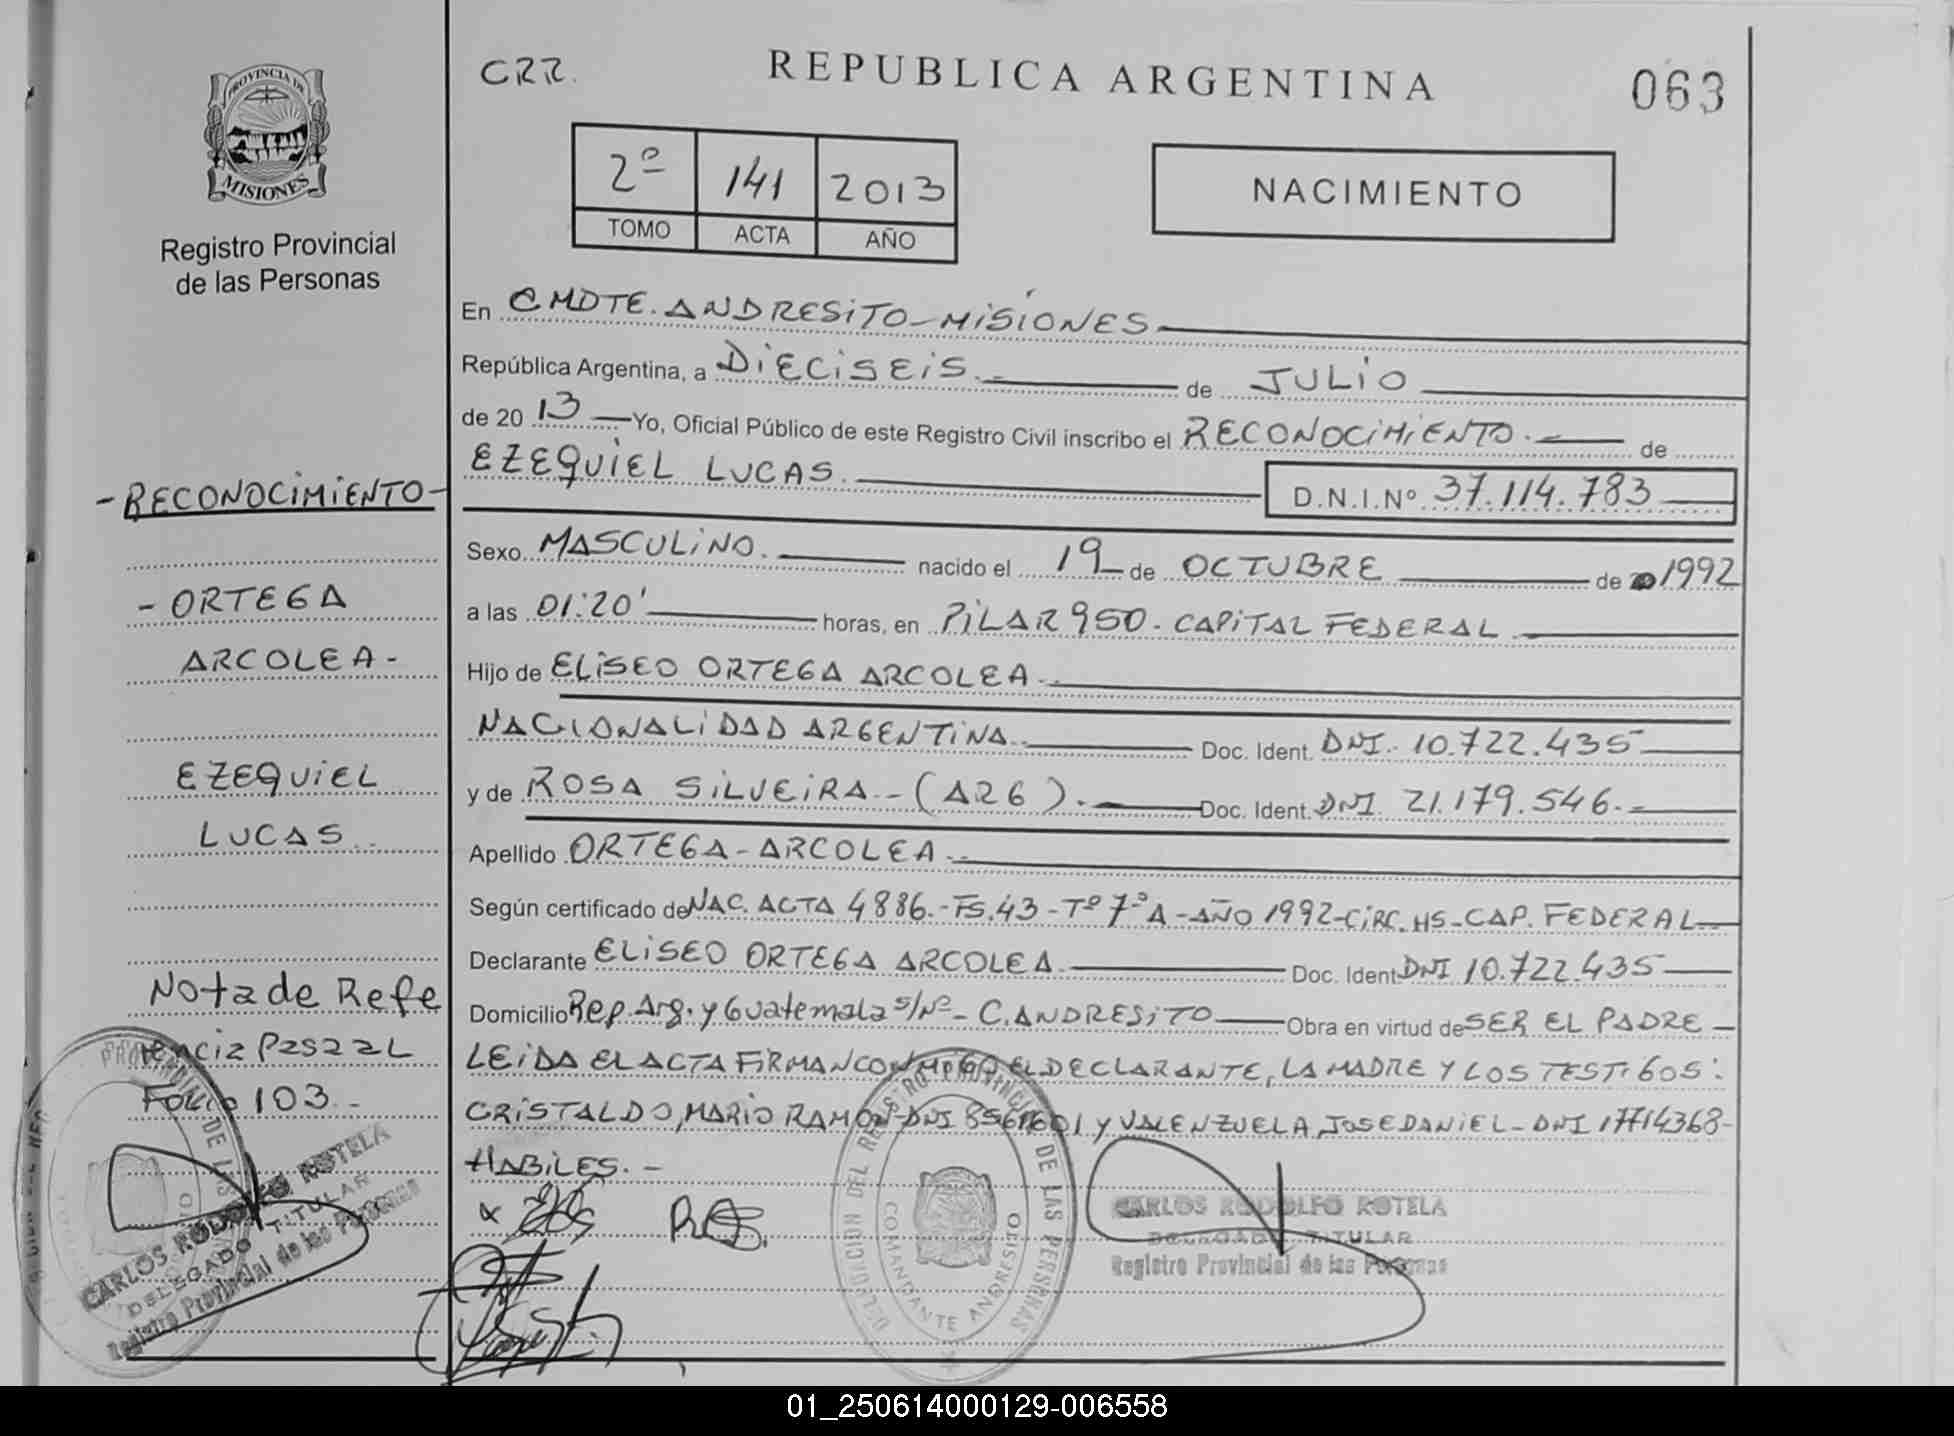 PROVINCIA DE
MISIONES
Registro Provincial
de las Personas
CRR.
REPUBLICA ARGENTINA
063
2º 141 2013
TOMO ACTA AÑO
NACIMIENTO
En CMDTE. ANDRESITO-MISIONES
República Argentina, a DIECISEIS. de JULIO
de 20 13 Yo, Oficial Público de este Registro Civil inscribo el RECONOCIMIENTO. de
EZEQUIEL LUCAS. D.N.I.Nº 37.114.783
Sexo MASCULINO. nacido el 19 de OCTUBRE de 1992
a las 01:20' horas, en PILAR 950. CAPITAL FEDERAL
Hijo de ELISEO ORTEGA ARCOLEA.
NACIONALIDAD ARGENTINA. Doc. Ident. DNI. 10.722.435
y de ROSA SILVEIRA - (ARG). Doc. Ident. DNI 21.179.546.-
Apellido ORTEGA-ARCOLEA.
Según certificado de NAC. ACTA 4886.-FS.43-Tº 7ºA-AÑO 1992-CIRC. HS-CAP. FEDERAL
Declarante ELISEO ORTEGA ARCOLEA. Doc. Ident DNI 10.722.435
Domicilio Rep. Arg. y Guatemala s/Nº - C. ANDRESITO Obra en virtud de SER EL PADRE -
LEIDA EL ACTA FIRMAN CONMIGO EL DECLARANTE, LA MADRE Y LOS TESTIGOS:
CRISTALDO, MARIO RAMON-DNI Y VALENZUELA, JOSE DANIEL-DNI 17714368-
HABILES. -
-RECONOCIMIENTO-
-ORTEGA
ARCOLEA-
EZEQUIEL
LUCAS.
Nota de Refe
rencia Pasa al
Folio 103.-
CARLOS RODOLFO ROTELA
DELEGADO TITULAR
Registro Provincial de las Personas
DELEGACION DEL REGISTRO PROVINCIAL DE LAS PERSONAS
COMANDANTE ANDRESITO
CARLOS RODOLFO ROTELA
DELEGADO TITULAR
Registro Provincial de las Personas
01_250614000129-006558